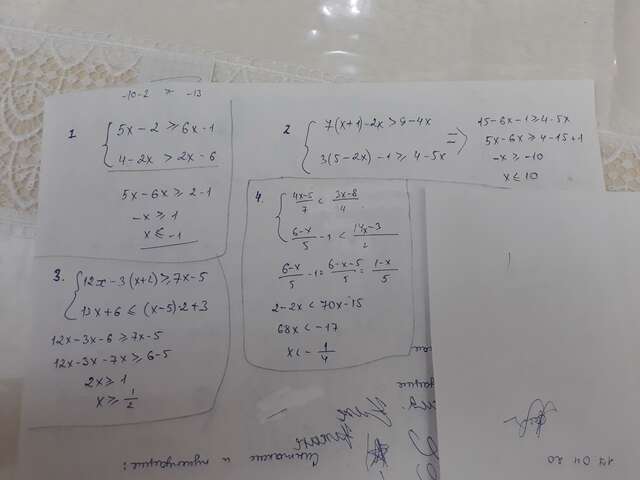 -10-2 ≥ -13
1
5x - 2 ≥ 6x - 1
4 - 2x > 2x - 6
5x - 6x ≥ 2 - 1
-x ≥ 1
x ≤ -1
2
7(x+1) - 2x > 9 - 4x
3(5-2x) - 1 ≥ 4 - 5x
=>
15 - 6x - 1 ≥ 4 - 5x
5x - 6x ≥ 4 - 15 + 1
-x ≥ -10
x ≤ 10
3.
12x - 3(x+2) ≥ 7x - 5
13x + 6 ≤ (x-5)·2 + 3
12x - 3x - 6 ≥ 7x - 5
12x - 3x - 7x ≥ 6 - 5
2x ≥ 1
x ≥ 1/2
4.
4x-5/7 < 3x-8/4
6-x/5 - 1 < 14x-3/2
6-x/5 - 1 = 6-x-5/5 = 1-x/5
2 - 2x < 70x - 15
68x < -17
x < - 1/4
17 04 20